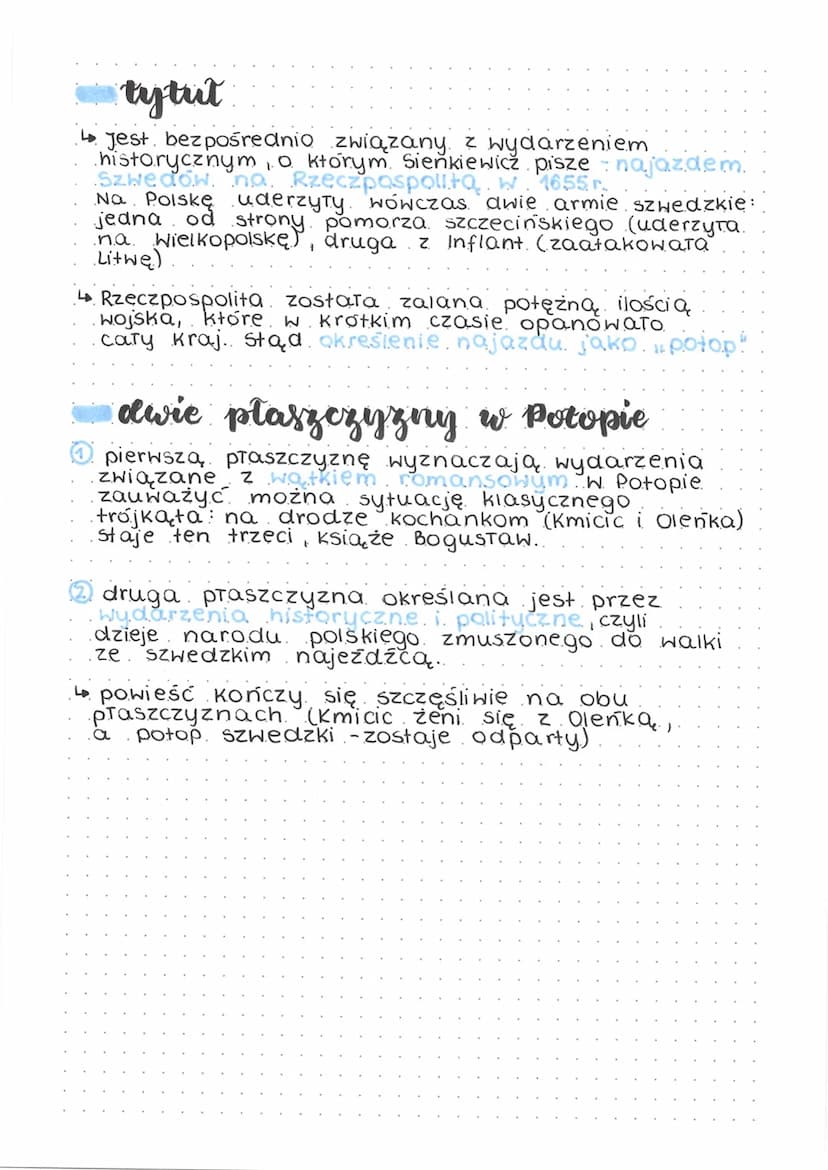 tytuł
↳ jest bezpośrednio związany z wydarzeniem
historycznym, o którym Sienkiewicz pisze - najazdem
Szwedów na Rzeczpospolitą w 1655r.
Na Polskę uderzyły wówczas dwie armie szwedzkie:
jedna od strony pomorza szczecińskiego (uderzyła
na Wielkopolskę), druga z Inflant (zaatakowała
Litwę)
↳ Rzeczpospolita została zalana potężną ilością
wojska, które w krótkim czasie opanowało
cały kraj. Stąd określenie najazdu jako „potop"
dwie płaszczyzny w Potopie
① pierwszą płaszczyznę wyznaczają wydarzenia
związane z wątkiem romansowym. W Potopie
zauważyć można sytuację klasycznego
trójkąta: na drodze kochankom (Kmicic i Oleńka)
staje ten trzeci, książe Bogusław.
② druga płaszczyzna określana jest przez
wydarzenia historyczne i polityczne, czyli
dzieje narodu polskiego zmuszonego do walki
ze szwedzkim najeźdźcą.
↳ powieść kończy się szczęśliwie na obu
płaszczyznach (Kmicic żeni się z Oleńką,
a potop szwedzki - zostaje odparty)